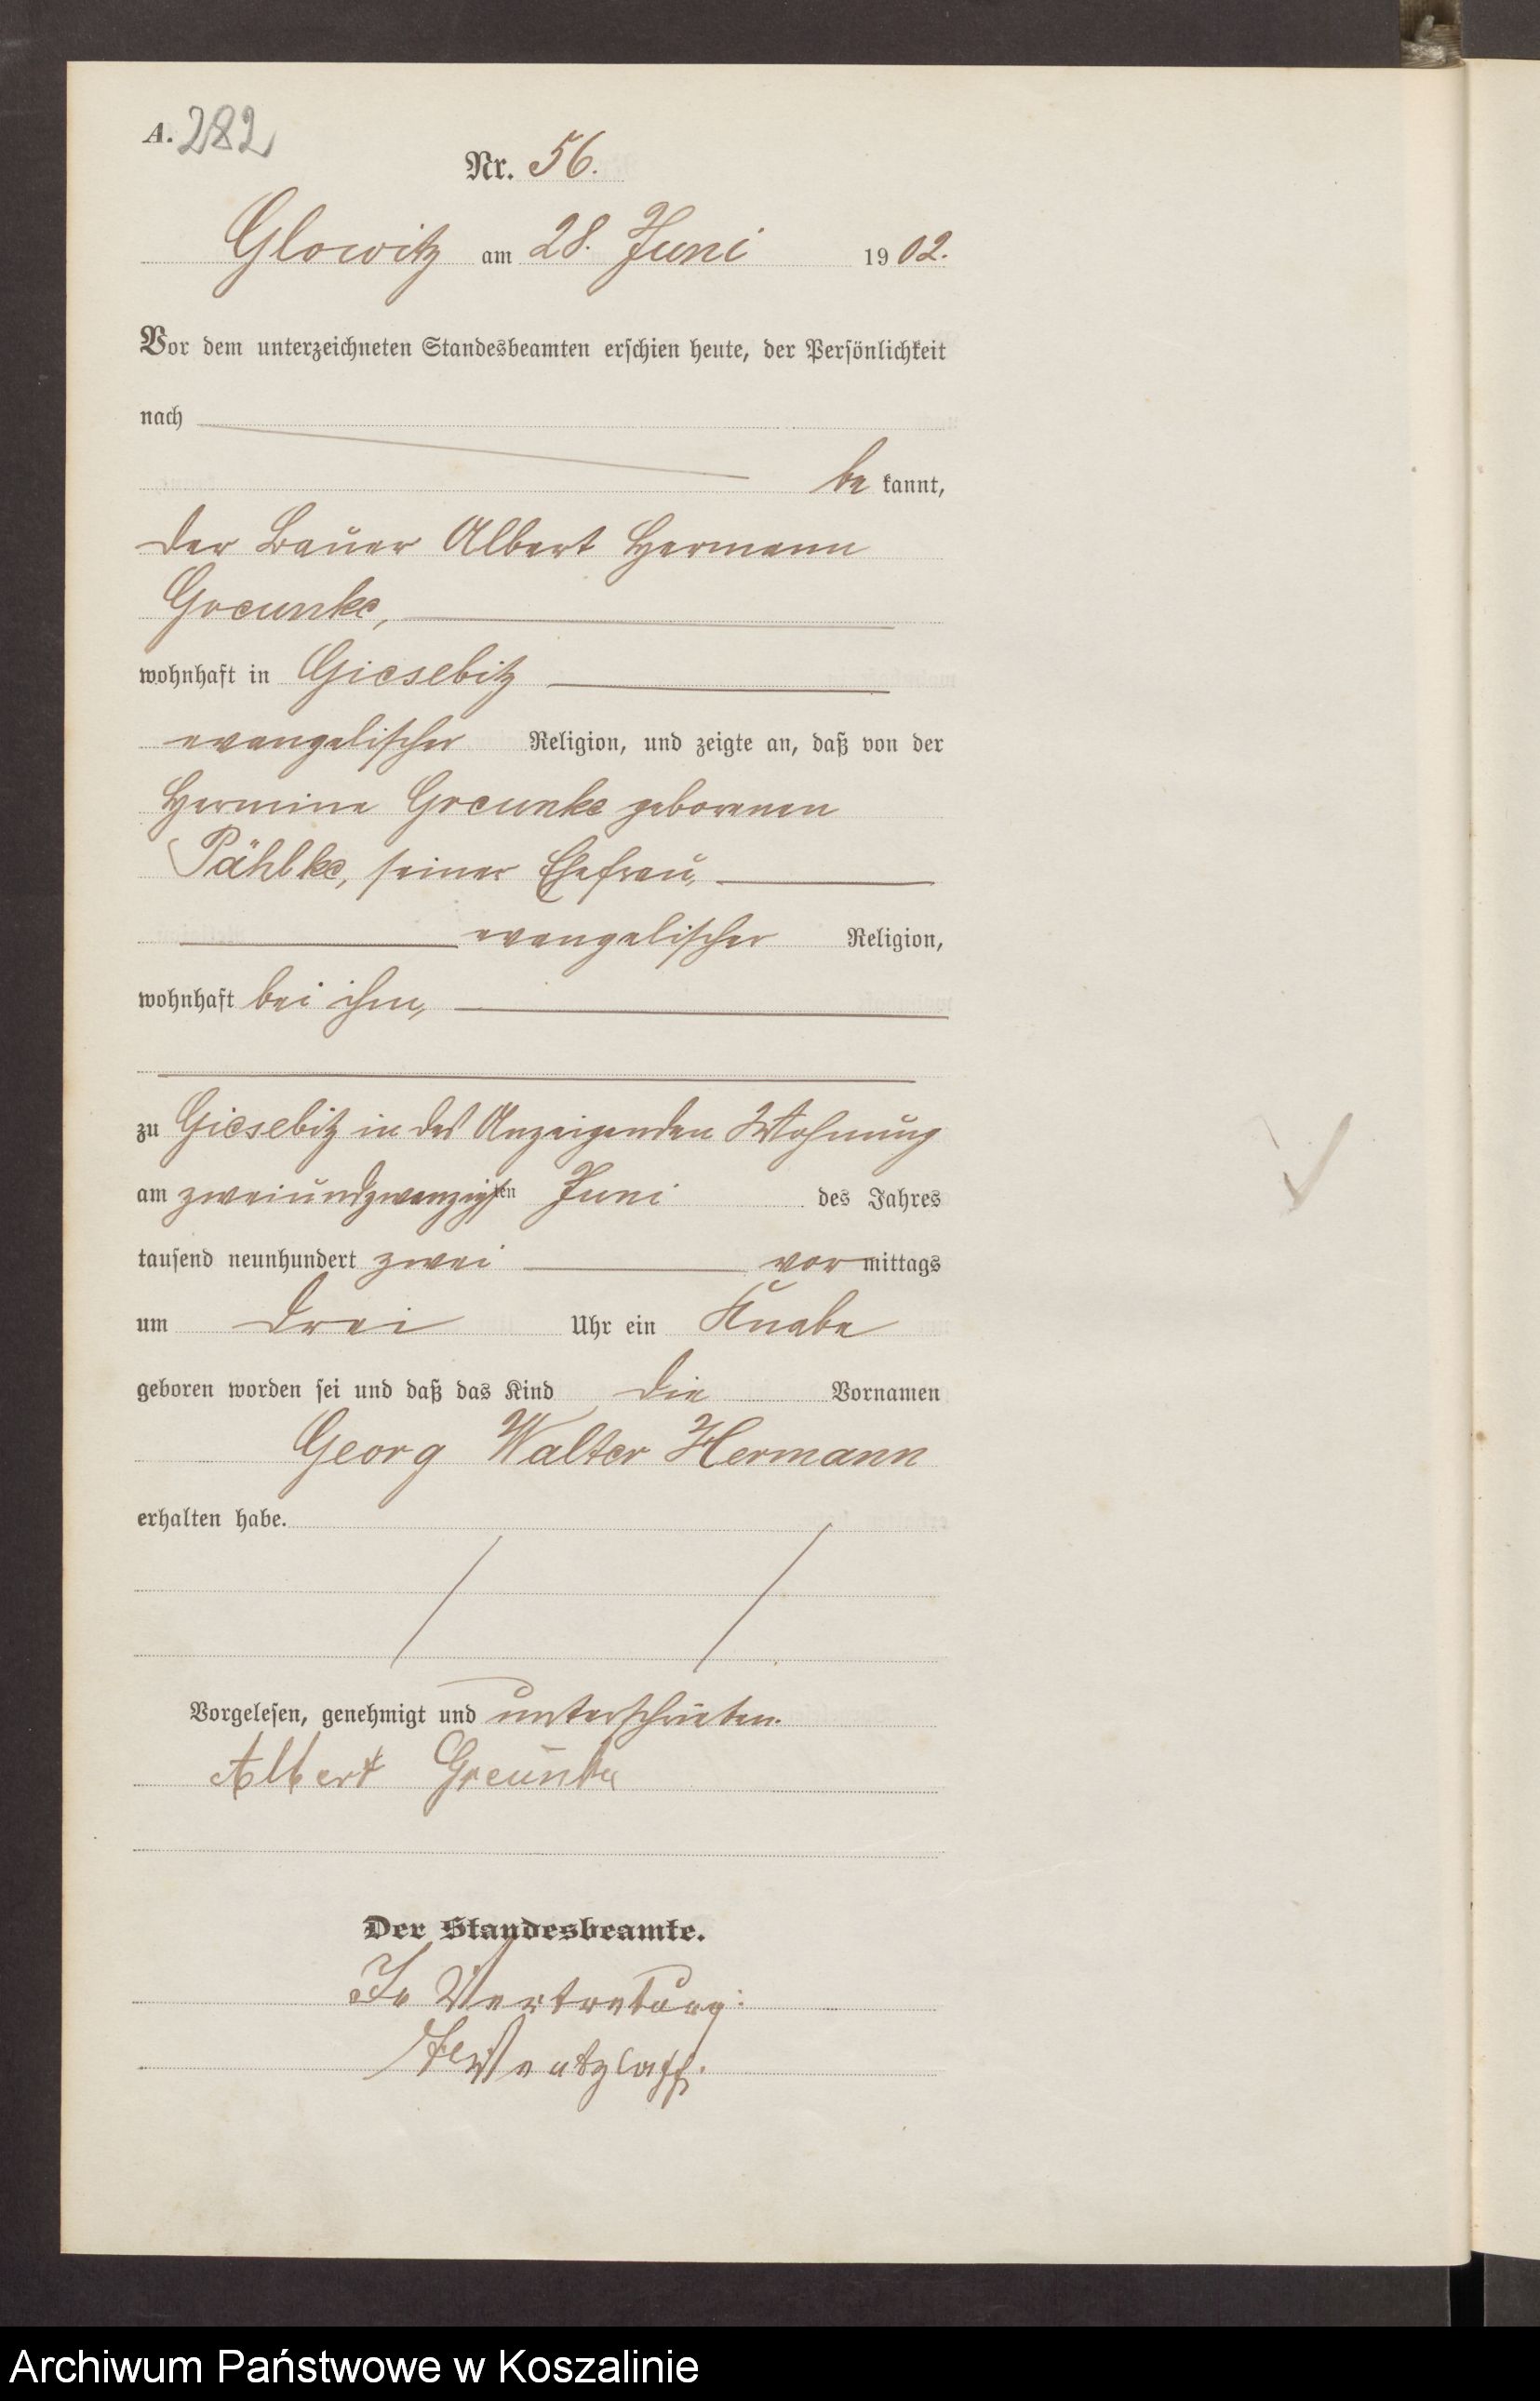 A. 282
Nr. 56.
Glowitz am 28. Juni 1902.
Vor dem unterzeichneten Standesbeamten erschien heute, der Persönlichkeit
nach
be kannt,
der Bauer Albert Hermann
Greunke,
wohnhaft in Giesebitz
evangelischer Religion, und zeigte an, daß von der
Hermine Greunke geborenen
Pählke, seiner Ehefrau,
evangelischer Religion,
wohnhaft bei ihm,
zu Giesebitz in des Anzeigenden Wohnung
am zweiundzwanzigsten Juni des Jahres
tausend neunhundert zwei vormittags
um drei Uhr ein Knabe
geboren worden sei und daß das Kind die Vornamen
Georg Walter Hermann
erhalten habe.
Vorgelesen, genehmigt und unterschrieben.
Albert Greunke
Der Standesbeamte.
In Vertretung:
Wentzlaff.
Archiwum Państwowe w Koszalinie